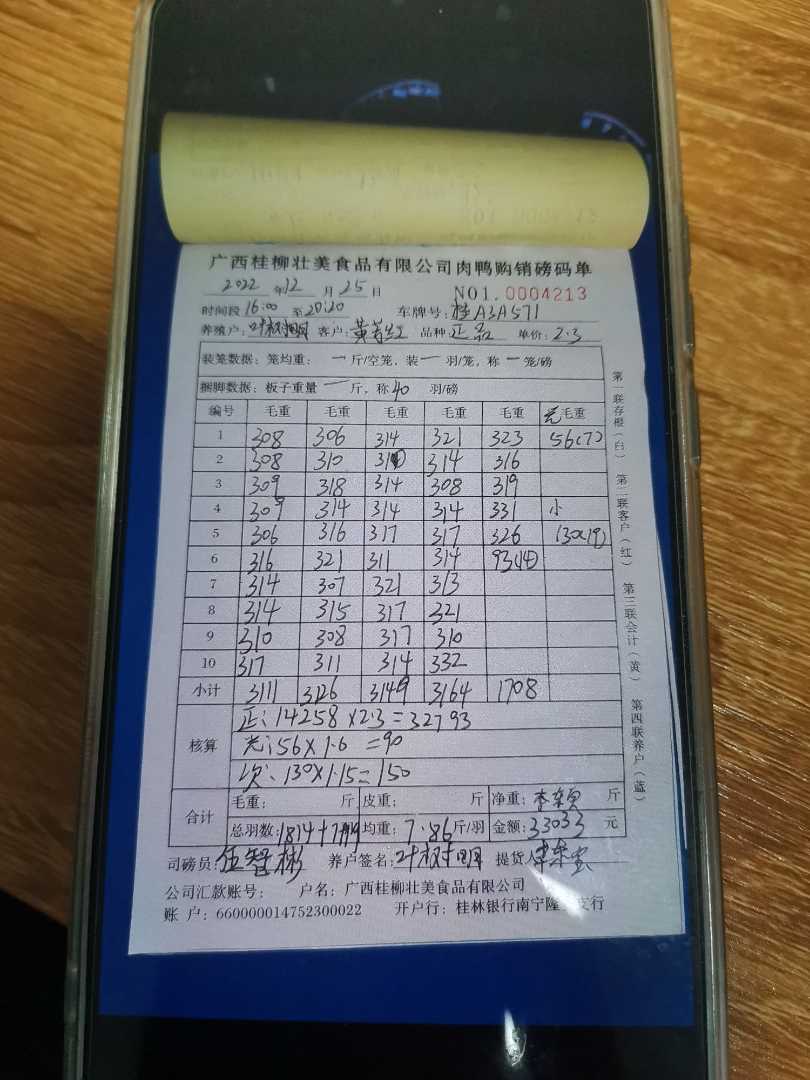 广西桂柳壮美食品有限公司肉鸭购销磅码单
2022 年 12 月 25 日 NO1.0004213
时间段 16:00 至 20:20 车牌号: 桂A3A571
养殖户: 叶树明 客户: 黄 红 品种: 正品 单价: 2.3
装笼数据: 笼均重: 一 斤/空笼, 装 一 羽/笼, 称 一 笼/磅
捆脚数据: 板子重量 一 斤, 称 40 羽/磅
编号 毛重 毛重 毛重 毛重 毛重 毛重
1 308 306 314 321 323 56(7)
2 308 310 314 316
3 309 318 314 308 319
4 309 314 314 314 331 小
5 306 316 317 317 326 130(19)
6 316 321 311 314 93(14)
7 314 307 321 313
8 314 315 317 321
9 310 308 317 310
10 317 311 314 332
小计 3111 3126 3149 3164 1708
核算
正: 14258×2.3=32793
光: 56×1.6=90
次: 130×1.15=150
合计
毛重: 斤 皮重: 斤 净重: 斤
总羽数: 1814+ 均重: 7.86 斤/羽 金额: 33033 元
司磅员: 伍智彬 养户签名: 叶树明 提货人
公司汇款账号: 户名: 广西桂柳壮美食品有限公司
账 户: 660000014752300022 开户行: 桂林银行南宁隆 支行
第一联存根(白) 第二联客户(红) 第三联会计(黄) 第四联养户(蓝)